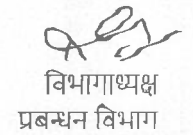 विभागाध्यक्ष
प्रबन्धन विभाग